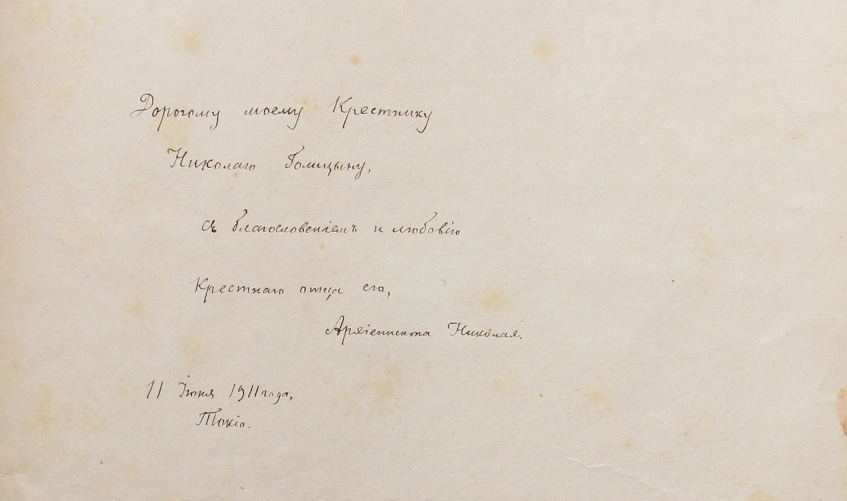 Дорогому моему Крестнику
Николаю Голицыну,
съ благословеніемъ и любовію
Крестнаго отца его,
Архіепископа Николая.
11 Іюня 1911 года.
Токіо.